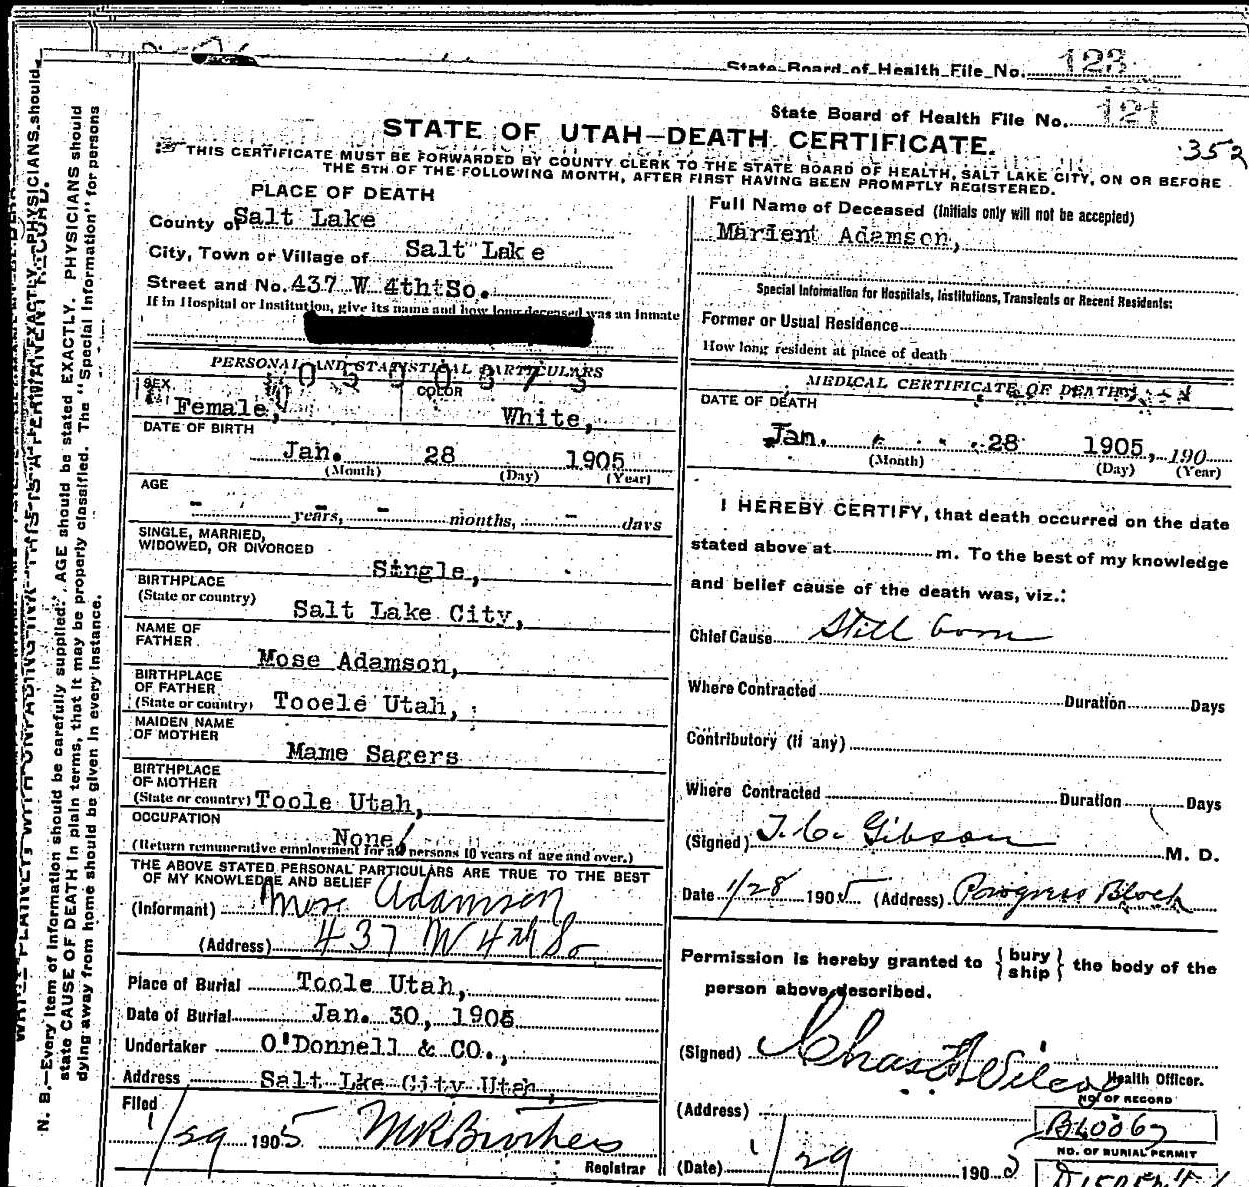 State Board of Health File No. 123
State Board of Health File No. 121
STATE OF UTAH—DEATH CERTIFICATE.
352
THIS CERTIFICATE MUST BE FORWARDED BY COUNTY CLERK TO THE STATE BOARD OF HEALTH, SALT LAKE CITY, ON OR BEFORE
THE 5TH OF THE FOLLOWING MONTH, AFTER FIRST HAVING BEEN PROMPTLY REGISTERED.
PLACE OF DEATH
County of Salt Lake
City, Town or Village of Salt Lake
Street and No. 437 W 4th So.
If in Hospital or Institution, give its name and how long deceased was an inmate
PERSONAL AND STATISTICAL PARTICULARS
SEX Female, COLOR White,
DATE OF BIRTH
Jan. 28 1905
(Month) (Day) (Year)
AGE
- years, - months, - days
SINGLE, MARRIED,
WIDOWED, OR DIVORCED
Single,
BIRTHPLACE
(State or country) Salt Lake City,
NAME OF
FATHER
Mose Adamson,
BIRTHPLACE
OF FATHER
(State or country) Tooele Utah,
MAIDEN NAME
OF MOTHER
Mame Sagers
BIRTHPLACE
OF MOTHER
(State or country) Toole Utah,
OCCUPATION
None
(Return remunerative employment for all persons 10 years of age and over.)
THE ABOVE STATED PERSONAL PARTICULARS ARE TRUE TO THE BEST
OF MY KNOWLEDGE AND BELIEF
(Informant) Mose Adamson
(Address) 437 W 4th So
Place of Burial Toole Utah,
Date of Burial Jan. 30, 1905
Undertaker O'Donnell & CO.,
Address Salt Lke City Utah,
Filed
1/29 1905 M R Brothers
Registrar
Full Name of Deceased (Initials only will not be accepted)
Marient Adamson,
Special Information for Hospitals, Institutions, Transients or Recent Residents:
Former or Usual Residence
How long resident at place of death
MEDICAL CERTIFICATE OF DEATH
DATE OF DEATH
Jan. 28 1905, 190
(Month) (Day) (Year)
I HEREBY CERTIFY, that death occurred on the date
stated above at m. To the best of my knowledge
and belief cause of the death was, viz.:
Chief Cause Still born
Where Contracted Duration Days
Contributory (if any)
Where Contracted Duration Days
(Signed) T. C. Gibson M. D.
Date 1/28 1905 (Address) Progress Block
Permission is hereby granted to { bury ship } the body of the
person above described.
(Signed) Chas
Health Officer.
(Address)
NO. OF RECORD
NO. OF BURIAL PERMIT
(Date) 1/29 190
N. B.—Every item of information should be carefully supplied. AGE should be stated EXACTLY. PHYSICIANS should
state CAUSE OF DEATH in plain terms, that it may be properly classified. The "Special Information" for persons
dying away from home should be given in every instance.